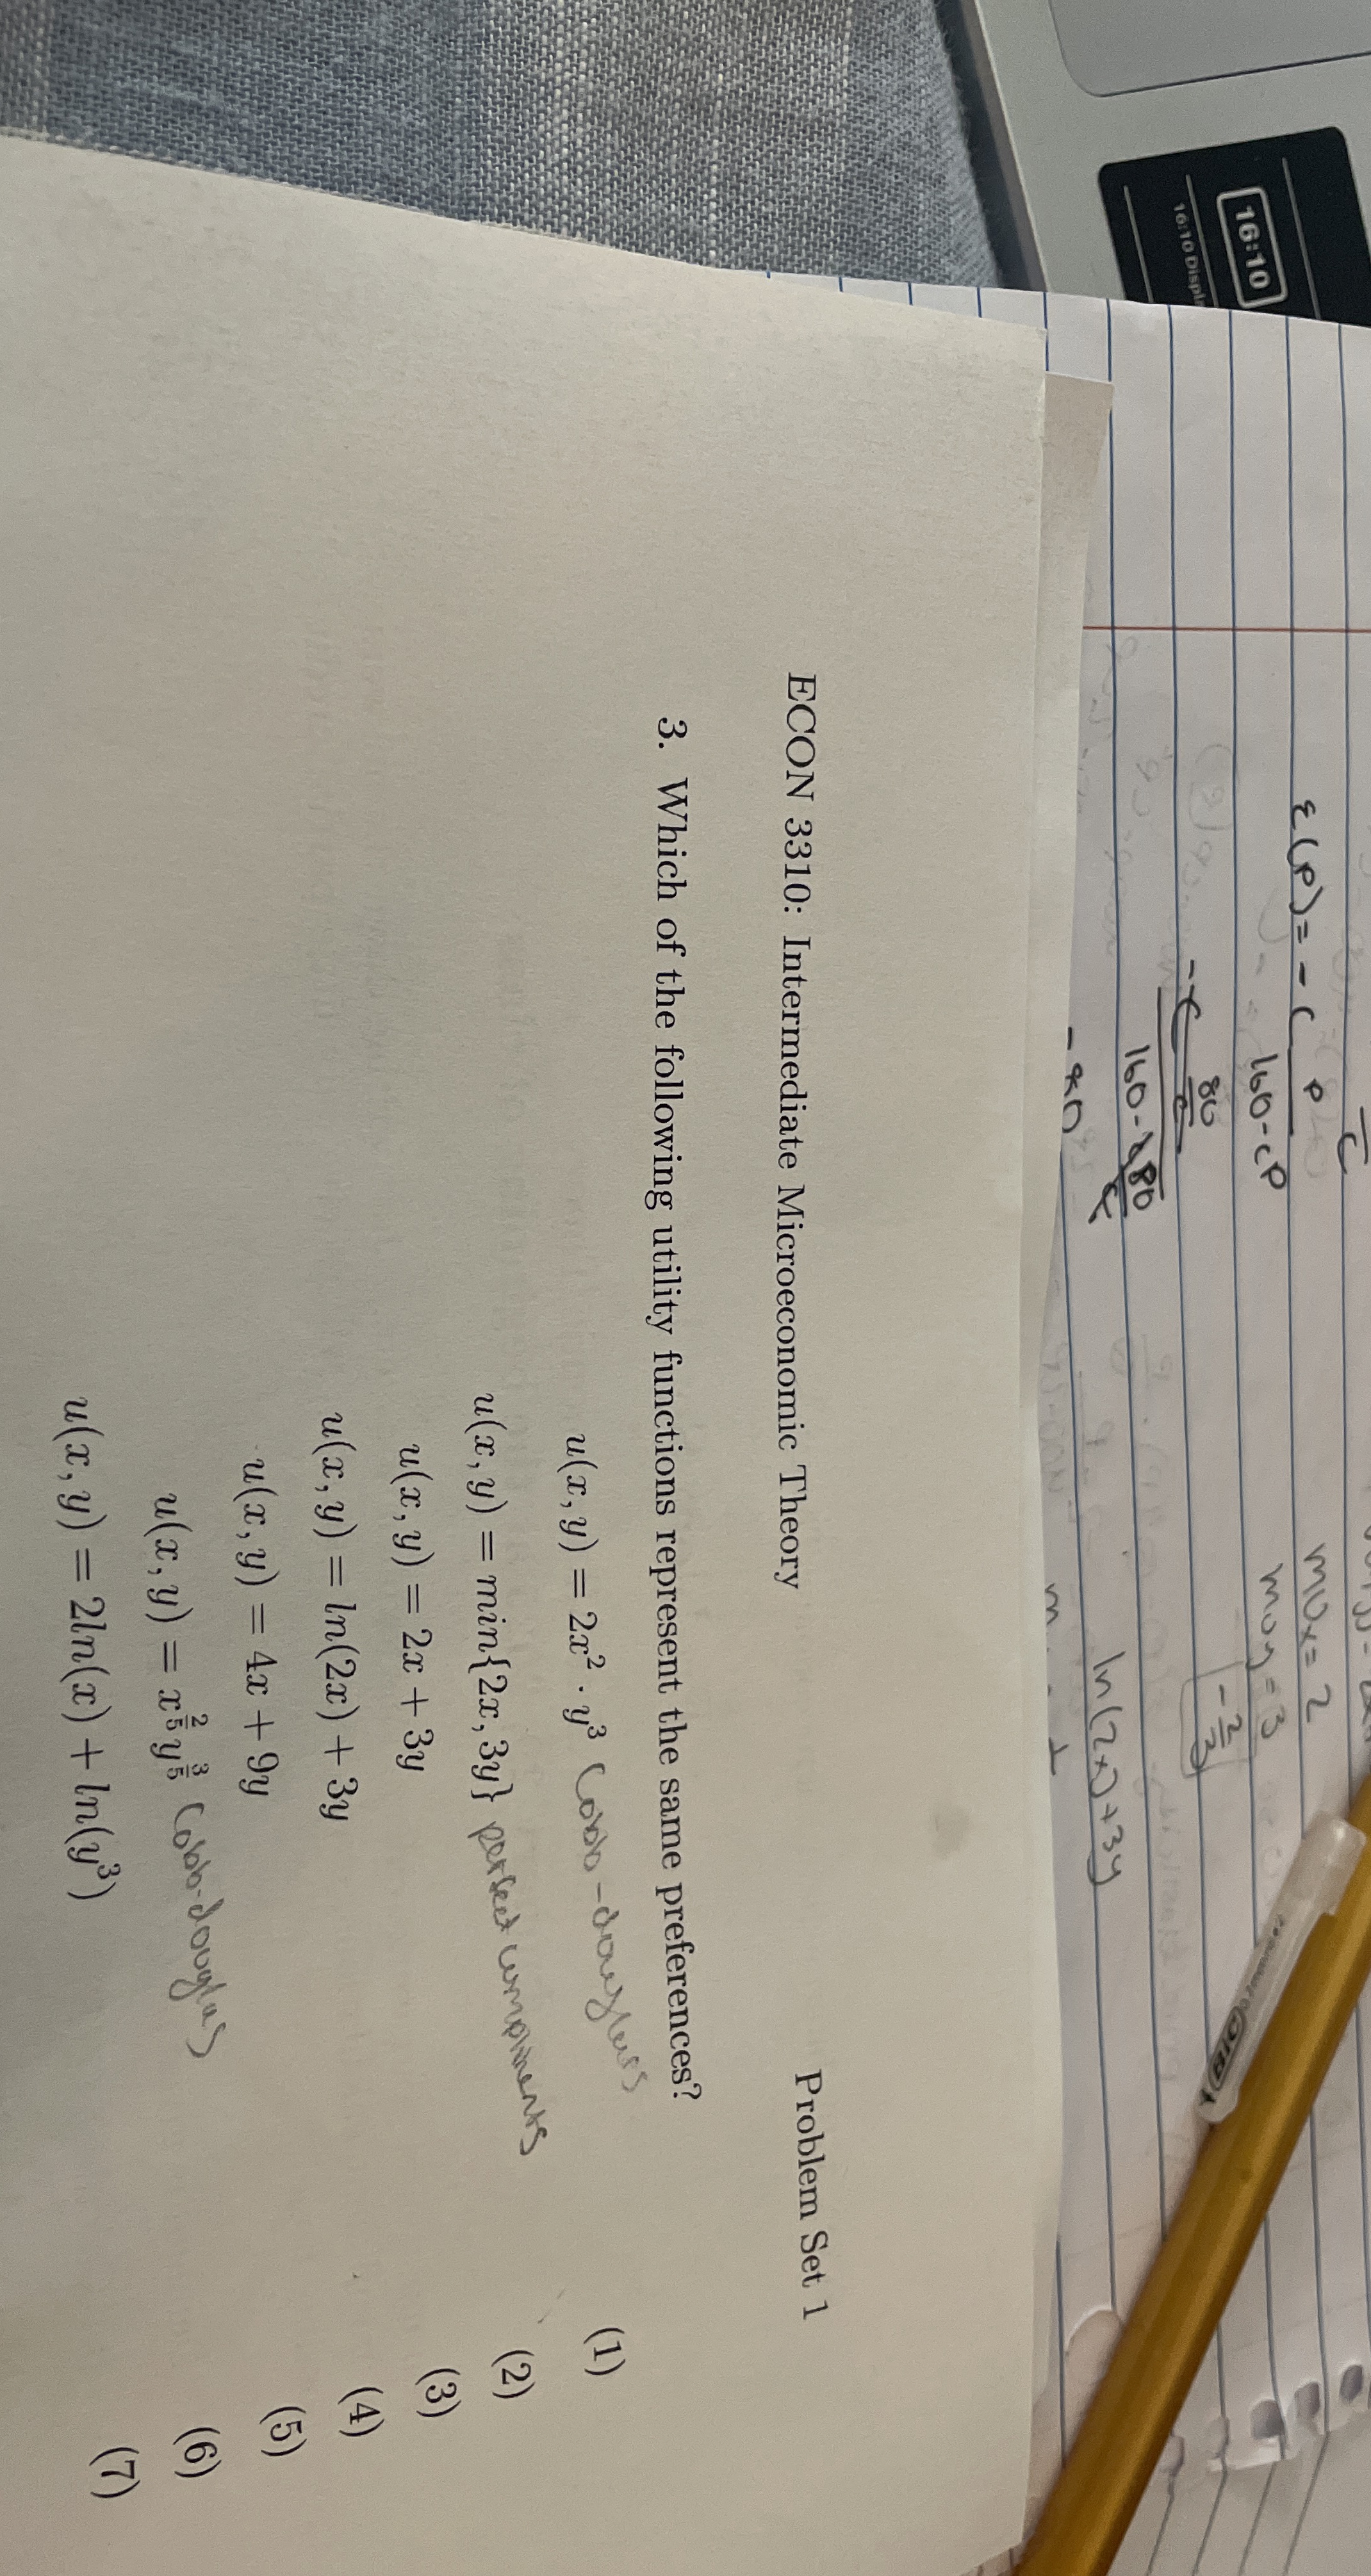 16:10
16:10 Displ
ε(p) = - c
p
160-cp
80
160-
-80
MUx = 2
MUy = 3
- 2/3
ln(2x)+3y
BIC
ECON 3310: Intermediate Microeconomic Theory Problem Set 1
3. Which of the following utility functions represent the same preferences?
u(x, y) = 2x² · y³ Cobb-douglass (1)
u(x, y) = min{2x, 3y} perfect compliments (2)
u(x, y) = 2x + 3y (3)
u(x, y) = ln(2x) + 3y (4)
u(x, y) = 4x + 9y (5)
u(x, y) = x^(2/5) y^(3/5) Cobb-douglas (6)
u(x, y) = 2ln(x) + ln(y³) (7)